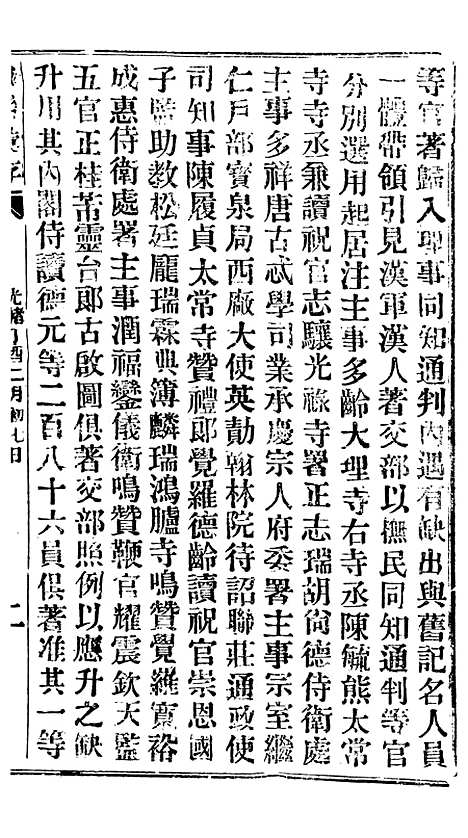 等官著歸入理事同知通判內遇有缺出與舊記名人員
一體帶領引見漢軍漢人著交部以撫民同知通判等官
分別選用起居注主事多齡大理寺右寺丞陳毓熊太常
寺寺丞兼讀祝官志驤光祿寺署正志瑞胡尙德侍衛處
主事多祥唐古忒學司業承慶宗人府委署主事宗室繼
仁戶部寶泉局西廠大使英勛翰林院待詔聯莊通政使
司知事陳履貞太常寺贊禮郎覺羅德齡讀祝官崇恩國
子監助教松廷龐瑞霖典簿麟瑞鴻臚寺鳴贊覺羅寶裕
成惠侍衛處署主事潤福鑾儀衛鳴贊鞭官耀震欽天監
五官正桂芾靈台郎古啟圖俱著交部照例以應升之缺
升用其內閣侍讀德元等二百八十六員俱著准其一等
光緒丁酉二月初七日
二